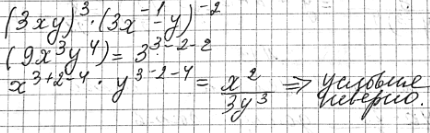 (3xy)³ · (3x⁻¹y)⁻²
(9x³y⁴) = 3³⁻²⁻²
x³⁺²⁻⁴ · y³⁻²⁻⁴ = x²/3y³ ⇒ условие неверно.